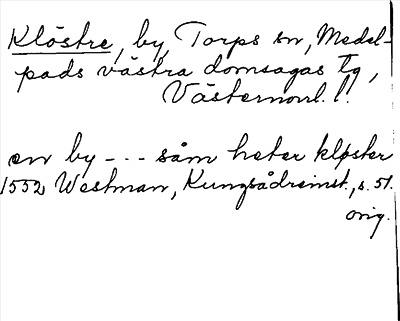 Klöstre, by, Torps sn, Medel-
pads västra domsagas tg,
Västernorrl. l.
en by - - - såm heter kloster
1552 Westman, Kungsådreinst., s. 51.
orig.